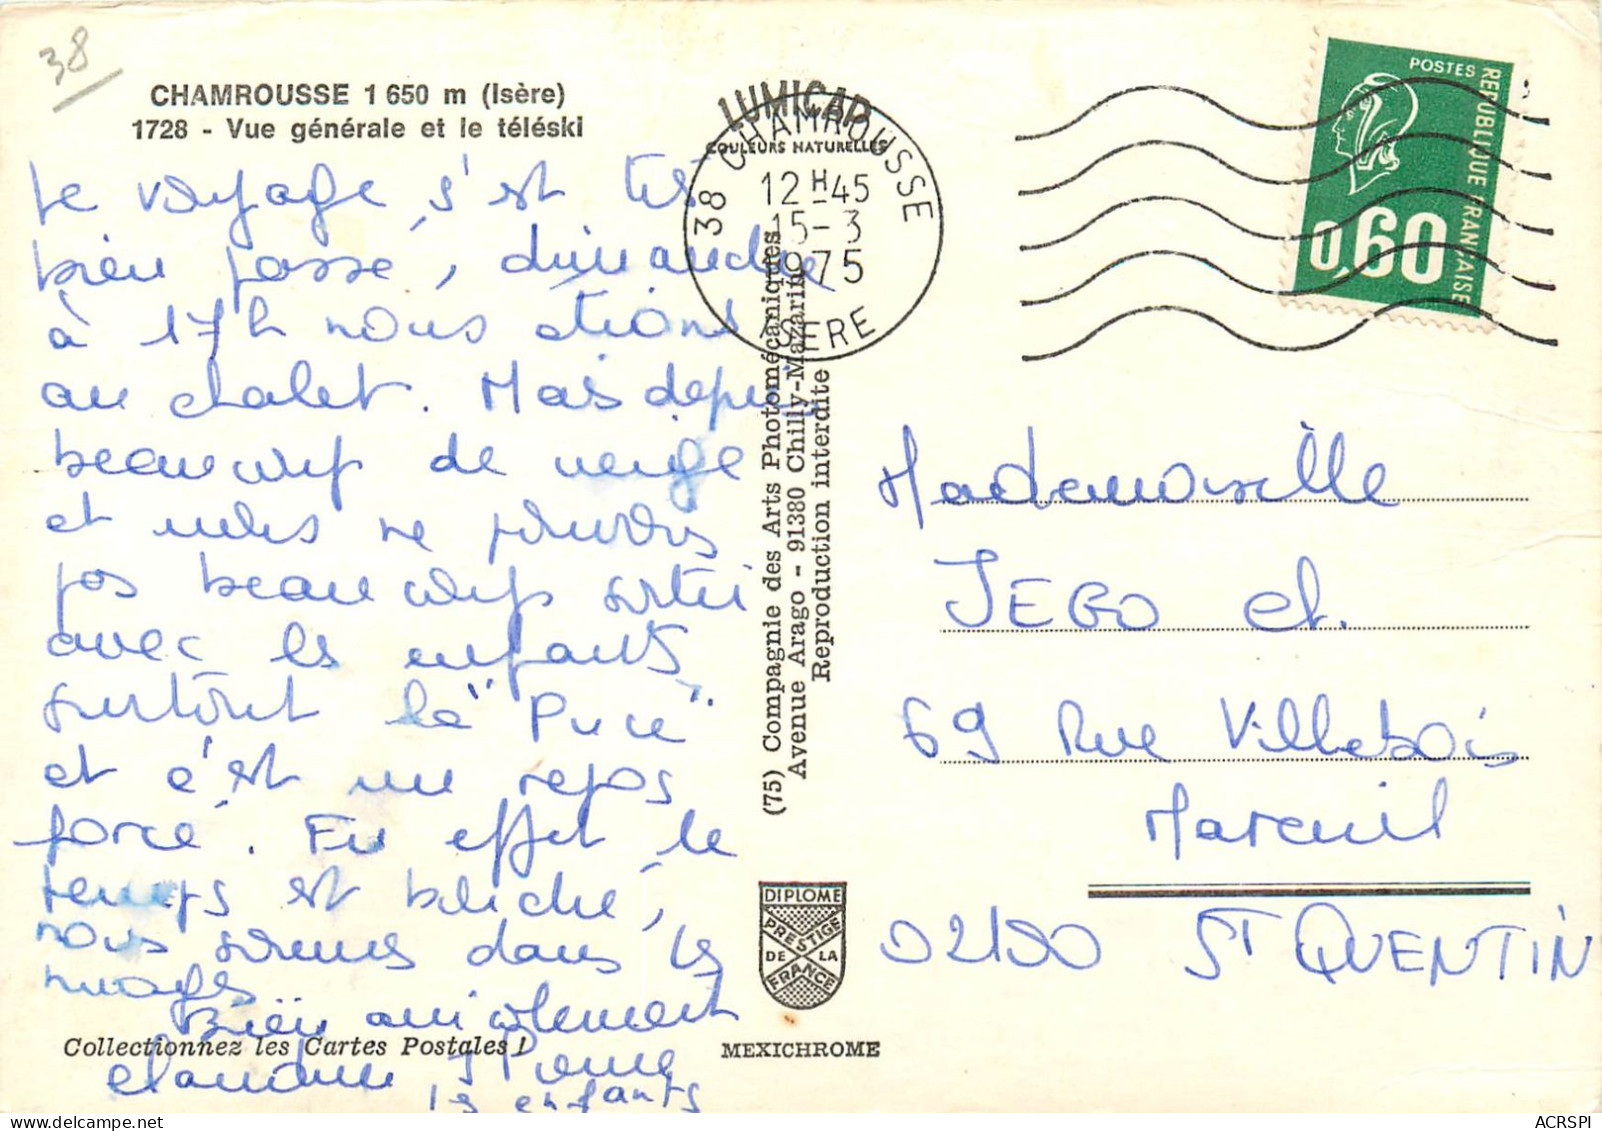 38
CHAMROUSSE 1 650 m (Isère)
1728 - Vue générale et le téléski
Le voyage s'est très
bien passé, dimanche
à 17h nous étions
au chalet. Mais depuis
beaucoup de neige
et nous ne pouvons
pas beaucoup sortir
avec les enfants
surtout la "Puce"
et c'est un repos
forcé. En effet le
temps est bouché,
nous sommes dans les
nuages
Bien amicalement
Claudine
les enfants
Collectionnez les Cartes Postales !
LUMICAP
COULEURS NATURELLES
38 CHAMROUSSE
12 H 45
15-3
1975
ISERE
(75) Compagnie des Arts Photomécaniques
Avenue Arago - 91380 Chilly-Mazarin
Reproduction interdite
DIPLOME
PRESTIGE
DE LA
FRANCE
MEXICHROME
POSTES
REPUBLIQUE FRANÇAISE
0,60
Mademoiselle
JEGO
69 Rue Villebois
Mareuil
02100 ST QUENTIN
ACRSPI